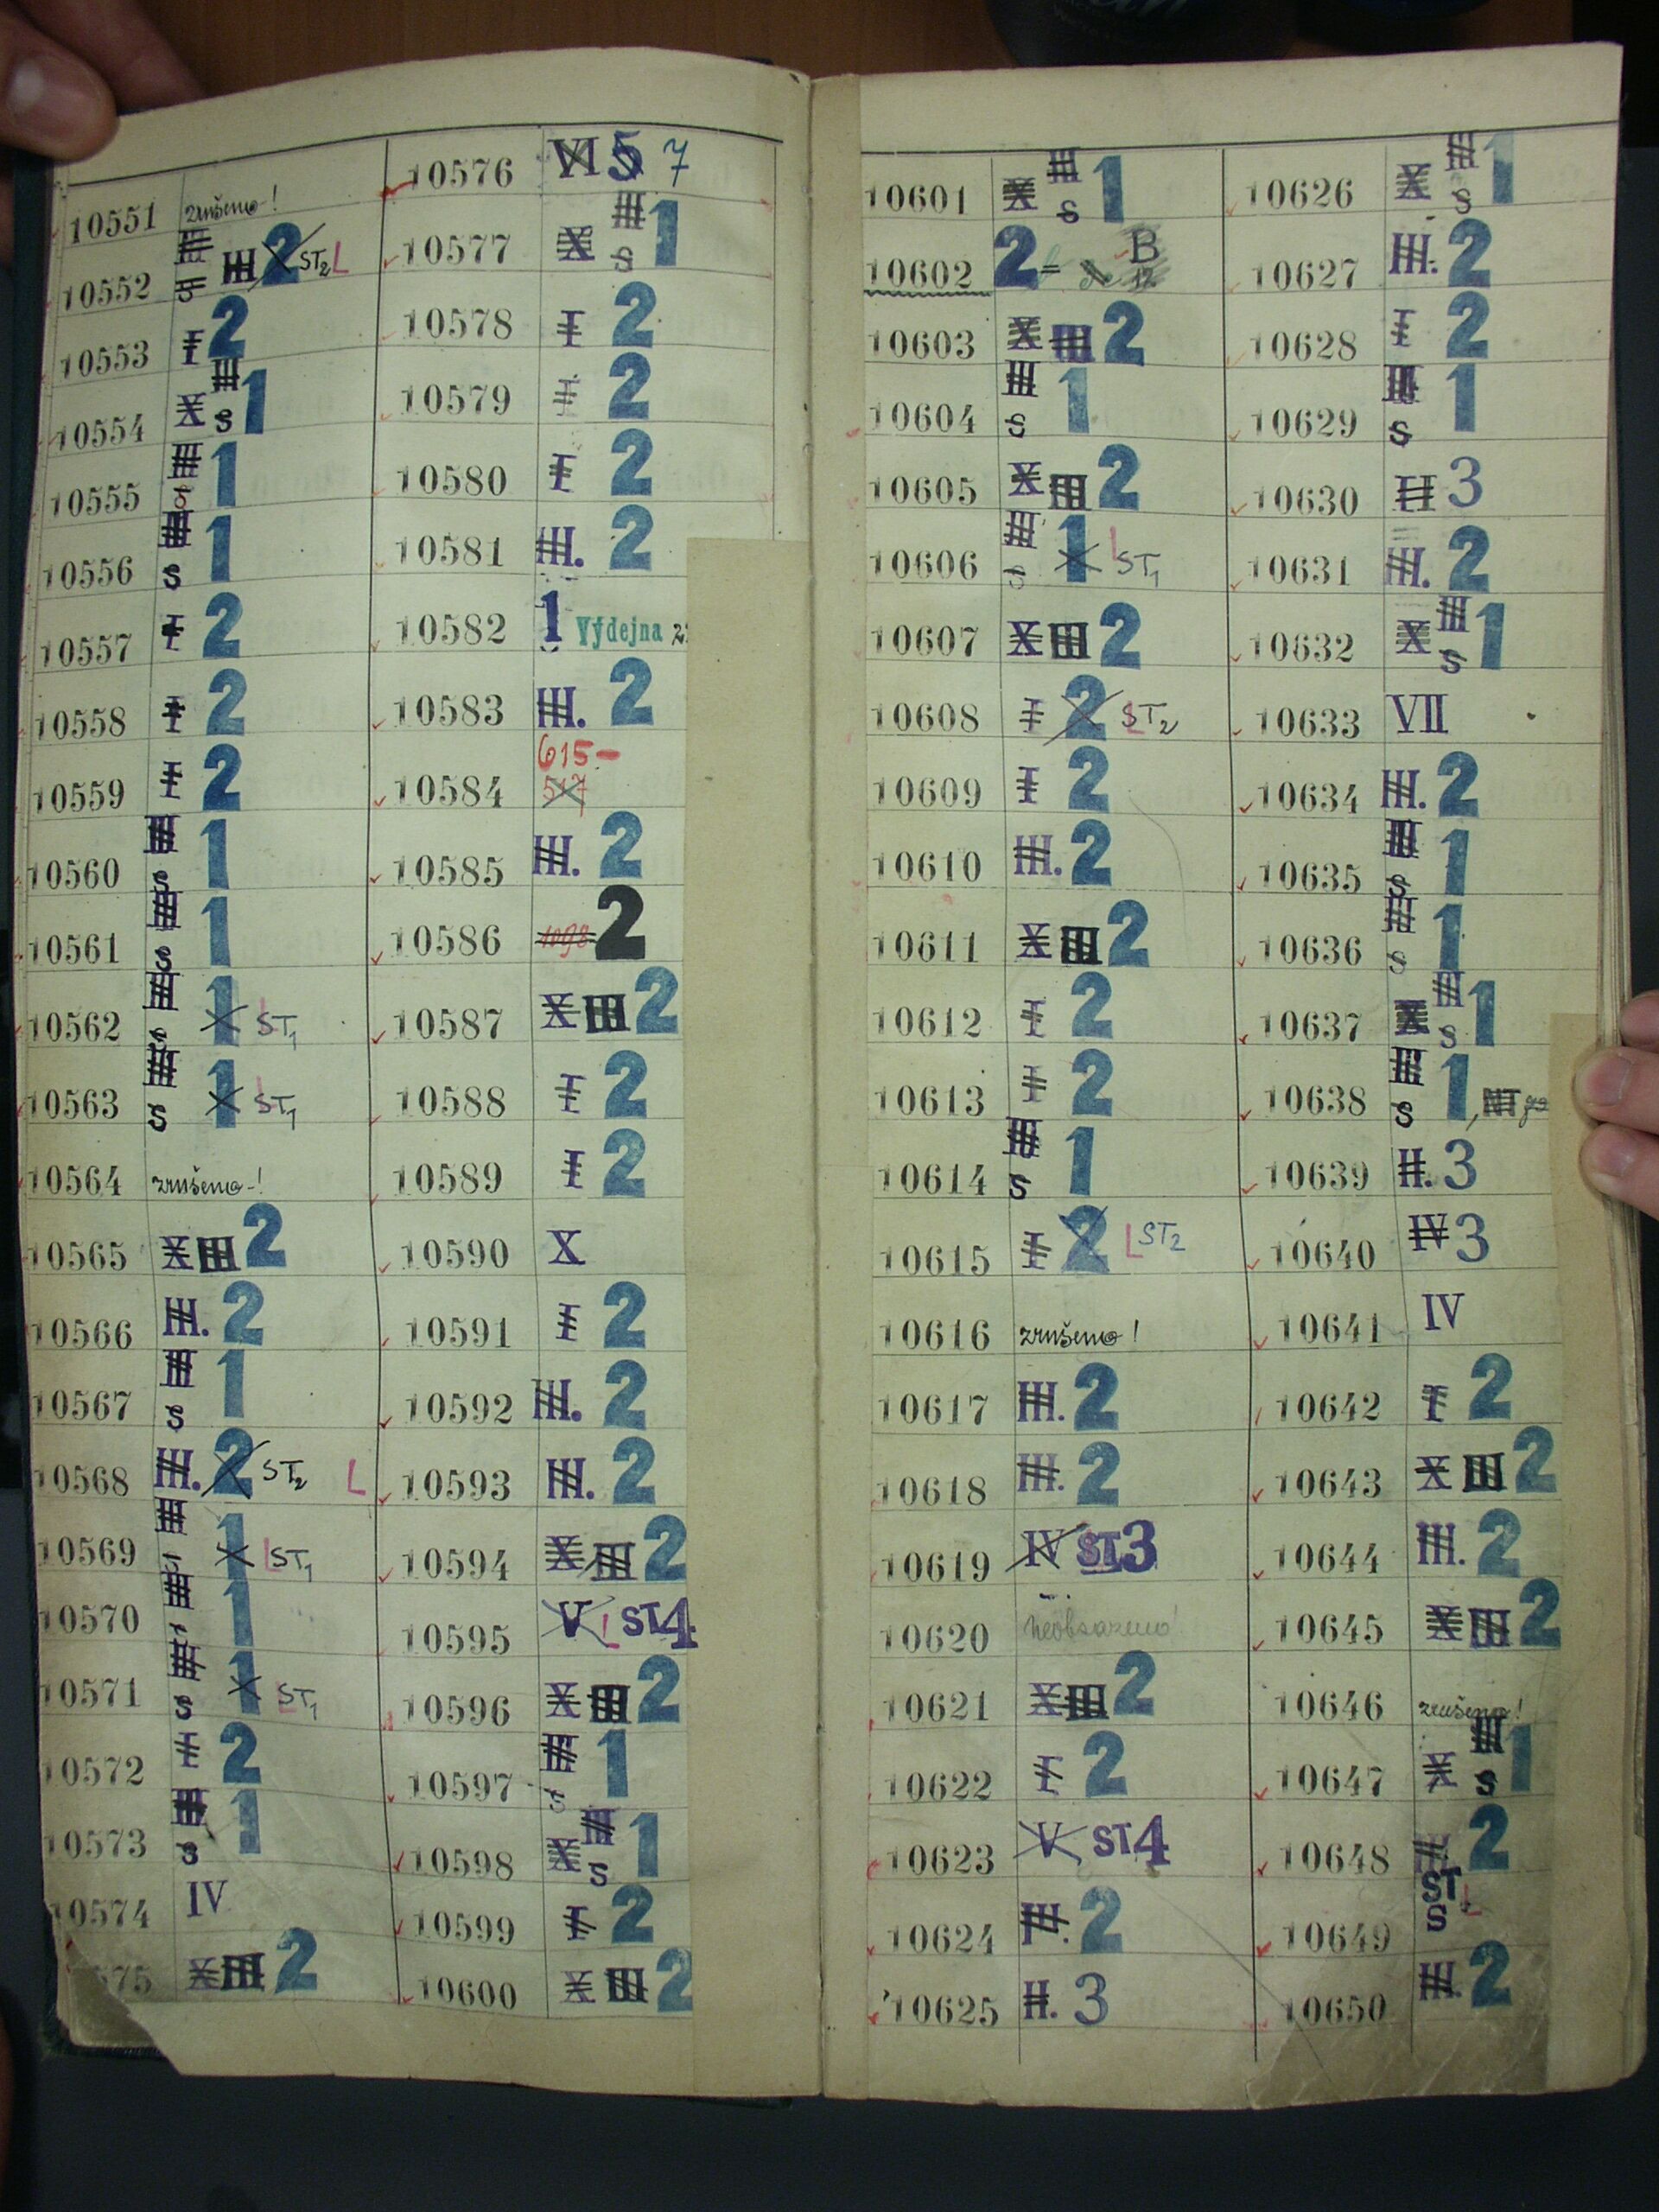 10551 zrušeno-!
10552 III S III 2 ST2 L
10553 I 2
10554 X III S 1
10555 III S 1
10556 III S 1
10557 I 2
10558 I 2
10559 I 2
10560 III S 1
10561 III S 1
10562 III S 1 L ST1
10563 III S 1 L ST1
10564 zrušeno-!
10565 X III 2
10566 III. 2
10567 III S 1
10568 III. 2 ST2 L
10569 III S 1 L ST1
10570 III S 1
10571 III S 1 L ST1
10572 I 2
10573 III S 1
10574 IV
575 X III 2
10576 VI 5 7
10577 X III S 1
10578 I 2
10579 I 2
10580 I 2
10581 III. 2
10582 1 Výdejna 2
10583 III. 2
10584 615- 517
10585 III. 2
10586 1098 2
10587 X III 2
10588 I 2
10589 I 2
10590 X
10591 I 2
10592 III. 2
10593 III. 2
10594 X III 2
10595 V L ST4
10596 X III 2
10597 III S 1
10598 X III S 1
10599 I 2
10600 X III 2
10601 X III S 1
10602 2 - B 12
10603 X III 2
10604 III S 1
10605 X III 2
10606 III S 1 L ST1
10607 X III 2
10608 I 2 L ST2
10609 I 2
10610 III. 2
10611 X III 2
10612 I 2
10613 I 2
10614 III S 1
10615 I 2 L ST2
10616 zrušeno!
10617 III. 2
10618 III. 2
10619 IV ST3
10620 neobsazeno!
10621 X III 2
10622 I 2
10623 V ST4
10624 III. 2
10625 II. 3
10626 X III S 1
10627 III. 2
10628 I 2
10629 III S 1
10630 II 3
10631 III. 2
10632 X III S 1
10633 VII
10634 III. 2
10635 III S 1
10636 III S 1
10637 X III S 1
10638 III S 1,
10639 II. 3
10640 IV 3
10641 IV
10642 I 2
10643 X III 2
10644 III. 2
10645 X III 2
10646 zrušeno!
10647 X III S 1
10648 III. 2
10649 ST L S
10650 III. 2